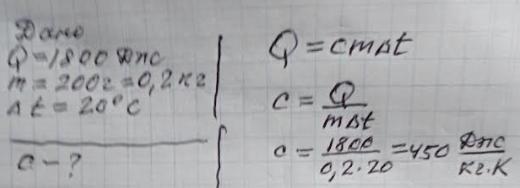 Дано
Q=1800 Дж
m=200г=0,2кг
Δt=20°C
c-?
Q=cmΔt
c=Q/mΔt
c=1800/0,2·20=450 Дж/кг·К